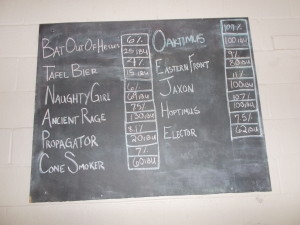 Bat Out Of Helles 6% 25 IBU
Tafel Bier 4% 15 IBU
Naughty Girl 6% 69 IBU
Ancient Rage 130 IBU
Propagator 8.1% 20 IBU
Cone Smoker 7% 60 IBU
Oaktimus 100 IBU
Eastern Front
Jaxon 11% 100 IBU
Hoptimus 10.7% 100 IBU
Elector 7.5% 62 IBU